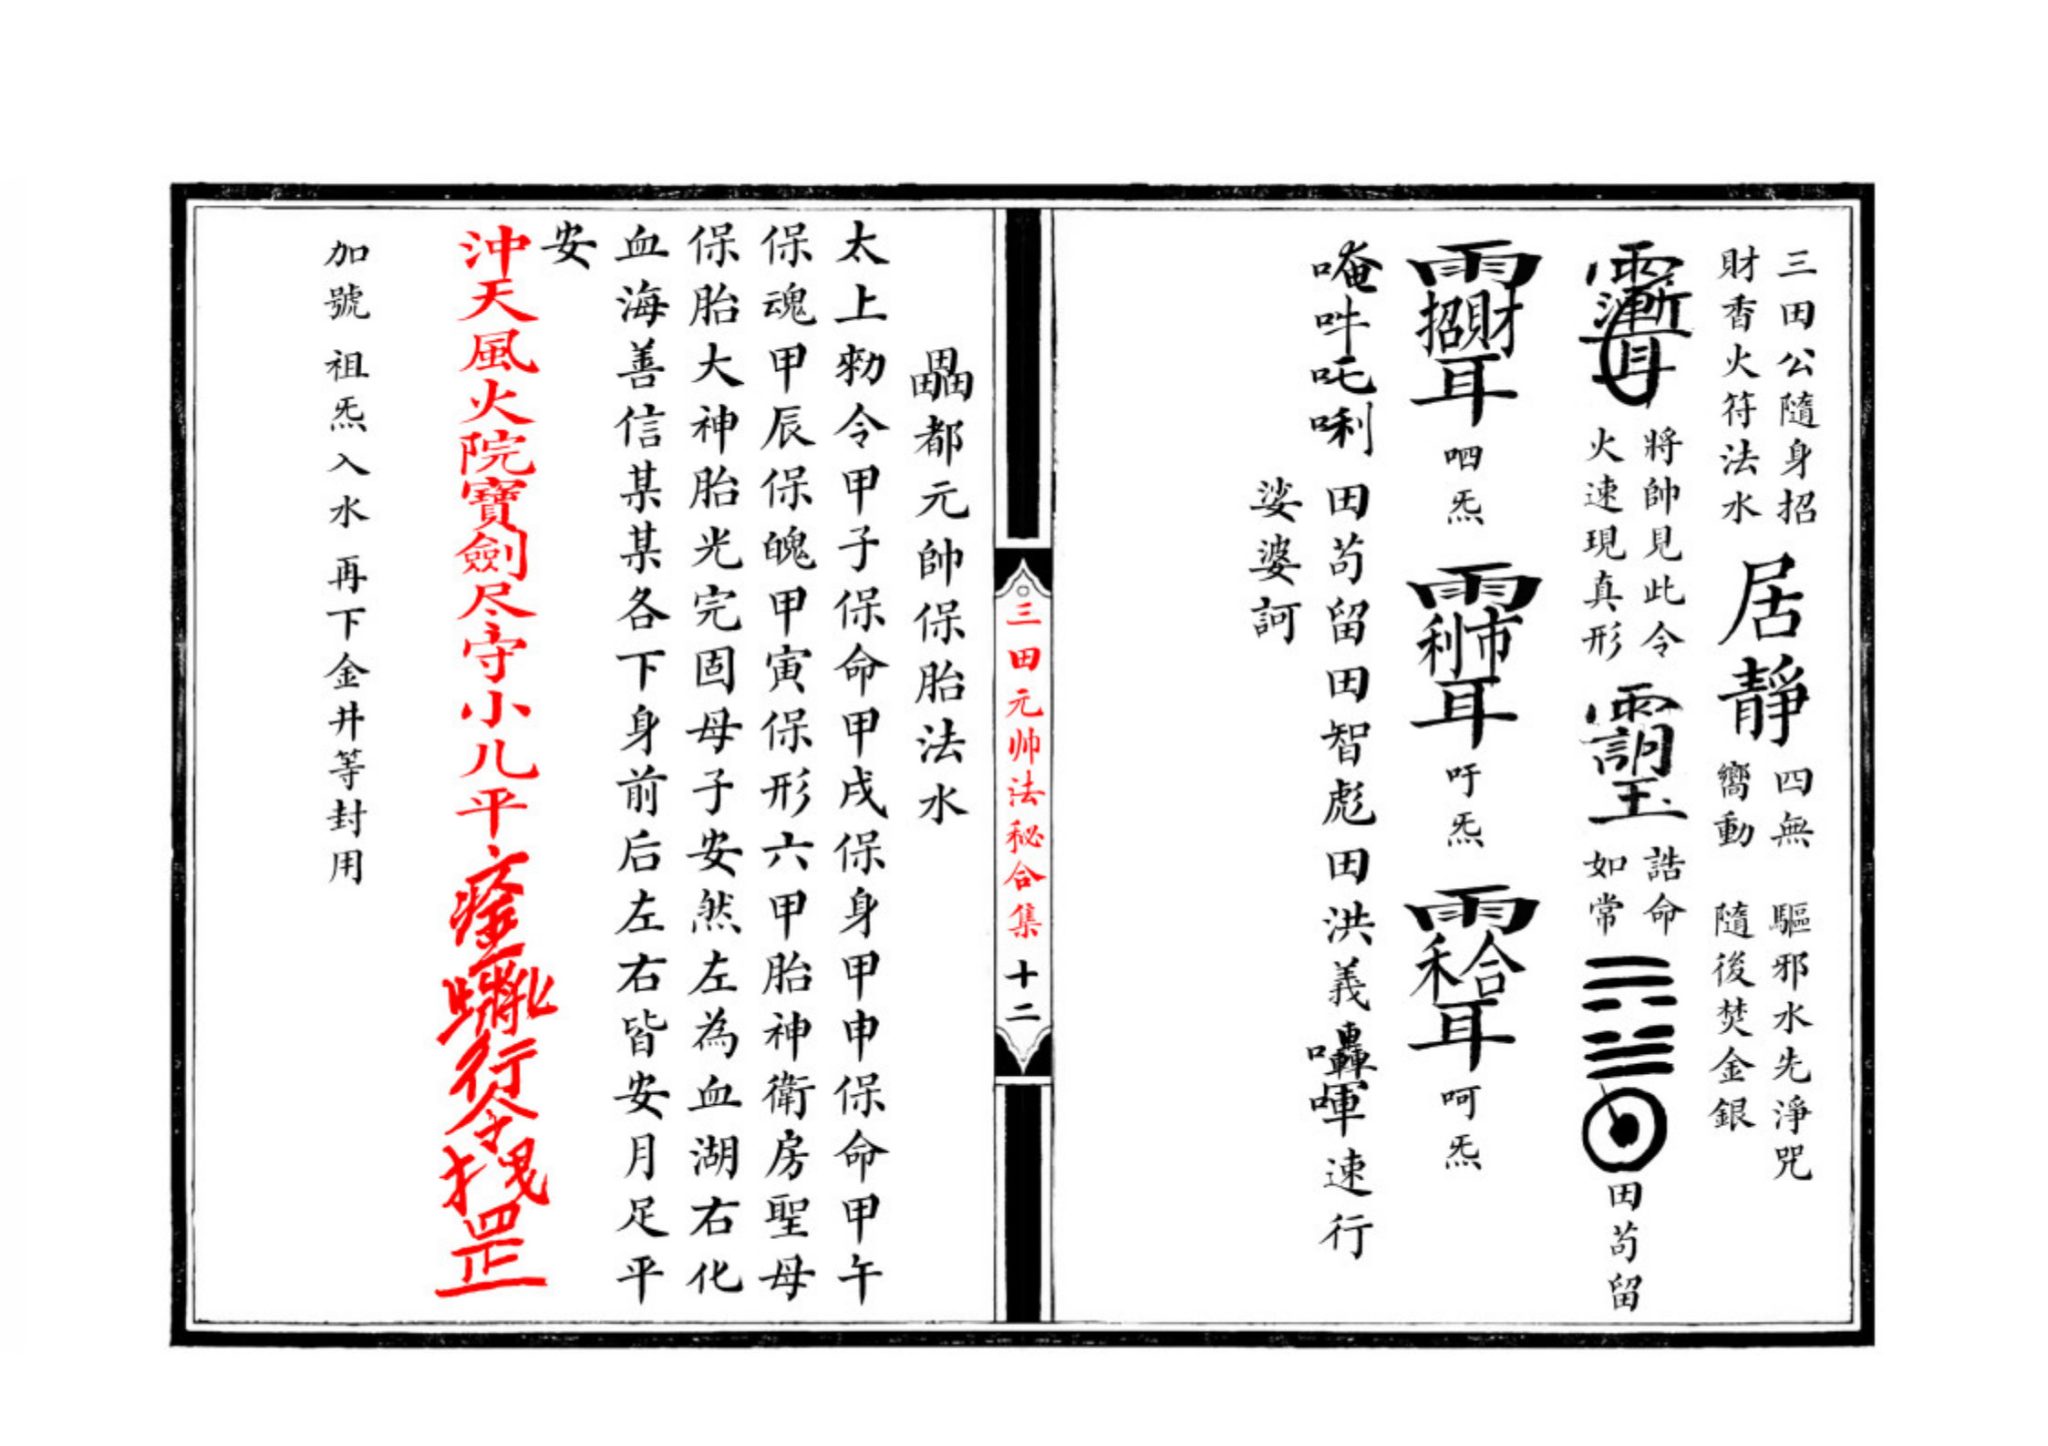 三田公隨身招
財香火符法水
居靜
四無
嚮動
驅邪水先淨咒
隨後焚金銀
將帥見此令
火速現真形
誥命
如常
田苟留
呬炁
吁炁
呵炁
唵吽吒唎 田苟留田智彪田洪義 速行
娑婆訶
三田元帅法秘合集 十二
畾都元帥保胎法水
太上勑令甲子保命甲戌保身甲申保命甲午
保魂甲辰保魄甲寅保形六甲胎神衛房聖母
保胎大神胎光完固母子安然左為血湖右化
血海善信某某各下身前后左右皆安月足平
安
沖天風火院寶劍尽守小儿平
行令
罡
加號 祖炁入水 再下金井等封用